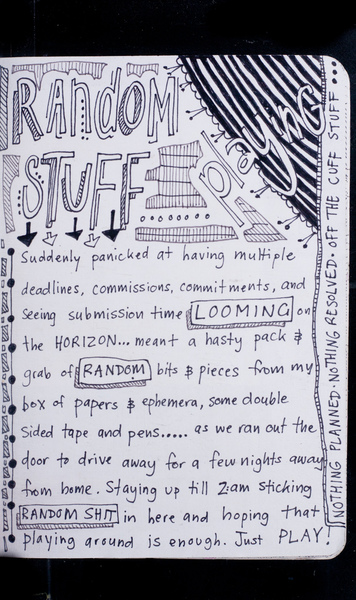 RANDOM
STUFF
playing
Suddenly panicked at having multiple
deadlines, commissions, commitments, and
seeing submission time LOOMING on
the HORIZON... meant a hasty pack &
grab of RANDOM bits & pieces from my
box of papers & ephemera, some double
sided tape and pens..... as we ran out the
door to drive away for a few nights away
from home. Staying up till 2am sticking
RANDOM SHIT in here and hoping that
playing around is enough. Just PLAY!
NOTHING PLANNED. NOTHING RESOLVED. OFF THE CUFF STUFF